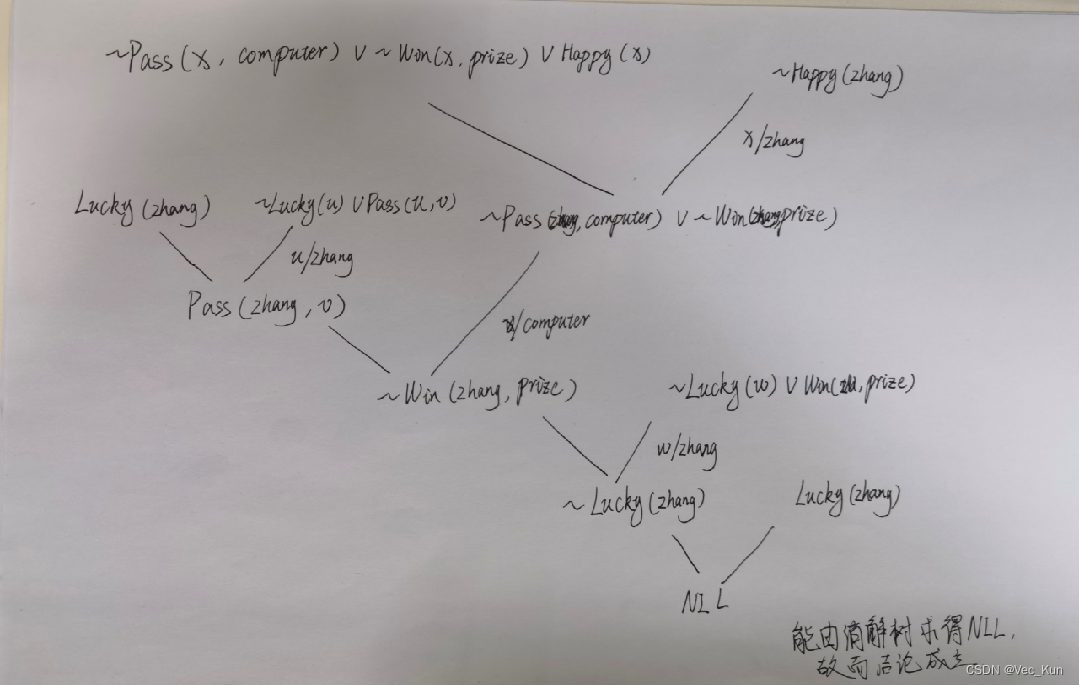 ~Pass(x, computer) ∨ ~Win(x, prize) ∨ Happy(x)
~Happy(zhang)
x/zhang
Lucky(zhang)
~Lucky(u) ∨ Pass(u, v)
~Pass(zhang, computer) ∨ ~Win(zhang, prize)
u/zhang
Pass(zhang, v)
/computer
~Win(zhang, prize)
~Lucky(w) ∨ Win(, prize)
w/zhang
~Lucky(zhang)
Lucky(zhang)
NIL
能由消解树求得NIL.
故而结论成立
CSDN @Vec_Kun